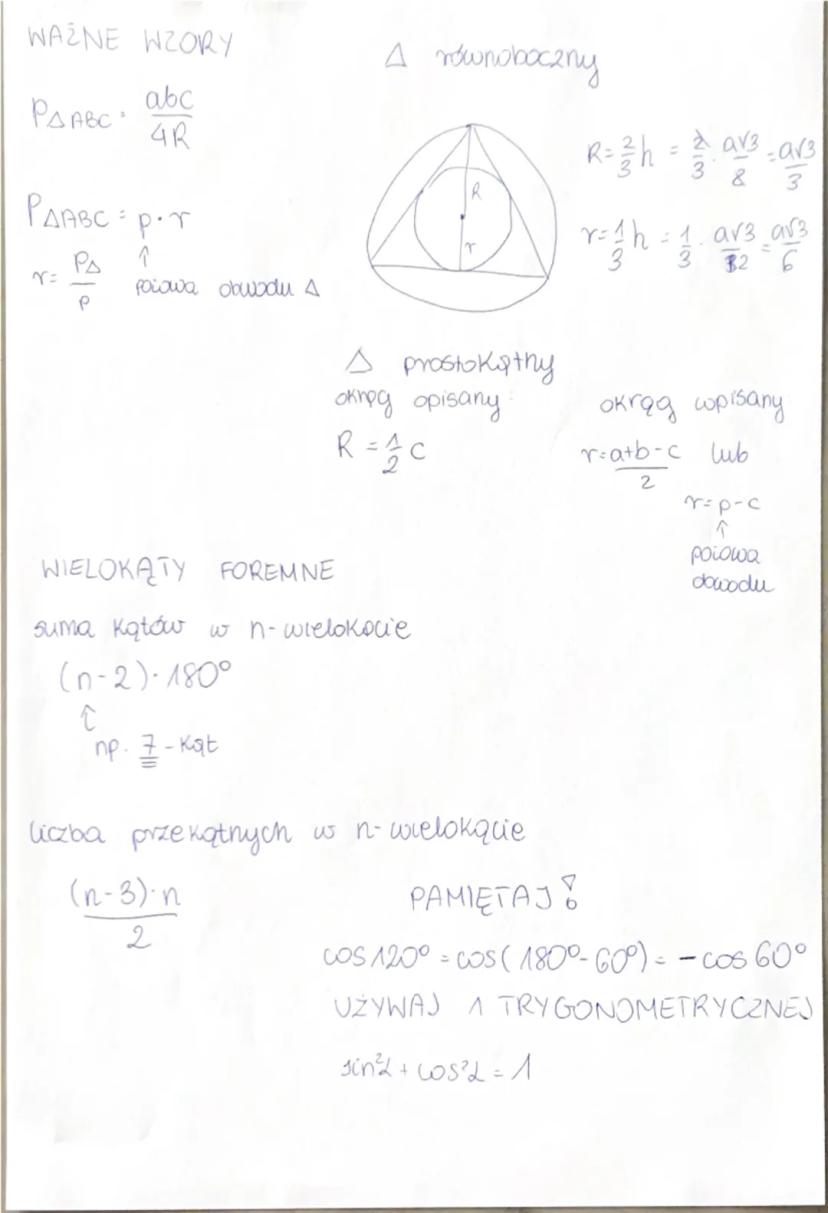 WAŻNE WZORY
P△ABC = abc/4R
P△ABC = p·r
↑
r = P△/p połowa obwodu △
△ równoboczny
R
r
R = 2/3 h = 2/3 · a√3/2 = a√3/3
r = 1/3 h = 1/3 · a√3/2 = a√3/6
△ prostokątny
okrąg opisany
R = 1/2 c
okrąg wpisany
r = a+b-c/2 lub
r = p-c
↑
połowa
obwodu
WIELOKĄTY FOREMNE
suma kątów w n-wielokącie
(n-2)·180°
↑
np. 7-kąt
liczba przekątnych w n-wielokącie
(n-3)·n/2
PAMIĘTAJ!
cos120° = cos(180°-60°) = -cos60°
UŻYWAJ 1 TRYGONOMETRYCZNEJ
sin²α + cos²α = 1